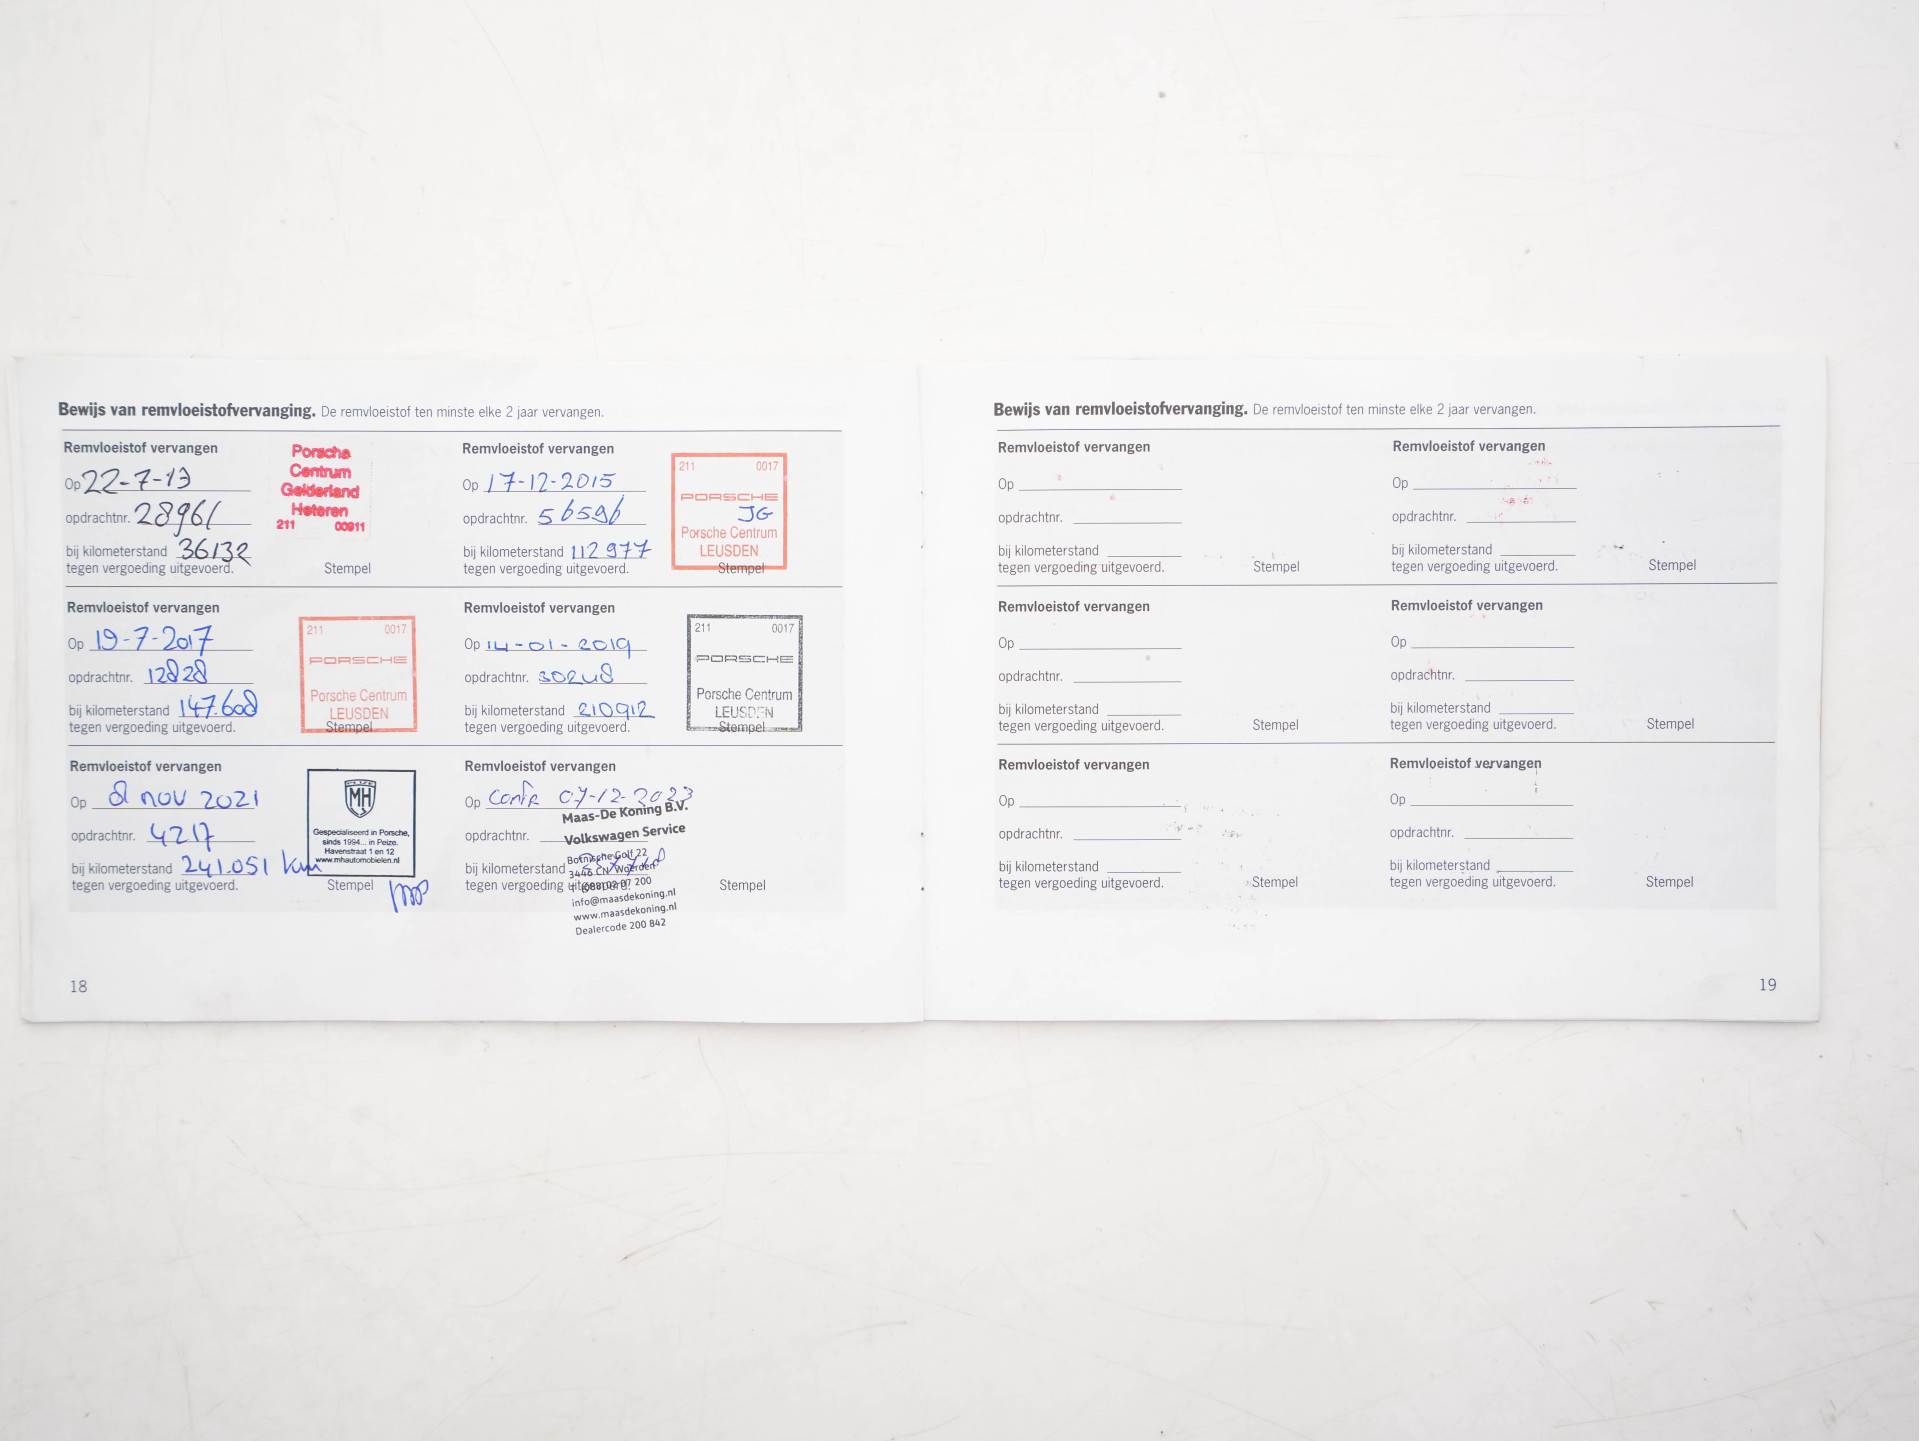 Bewijs van remvloeistofvervanging. De remvloeistof ten minste elke 2 jaar vervangen.
Remvloeistof vervangen
Op 22-7-13
opdrachtnr. 28961
bij kilometerstand 36132
tegen vergoeding uitgevoerd.
Porsche
Centrum
Gelderland
Heteren
211 00911
Stempel
Remvloeistof vervangen
Op 17-12-2015
opdrachtnr. 56596
bij kilometerstand 112977
tegen vergoeding uitgevoerd.
211 0017
PORSCHE
JG
Porsche Centrum
LEUSDEN
Stempel
Remvloeistof vervangen
Op 19-7-2017
opdrachtnr. 12828
bij kilometerstand 147.608
tegen vergoeding uitgevoerd.
211 0017
PORSCHE
Porsche Centrum
LEUSDEN
Stempel
Remvloeistof vervangen
Op 14-01-2019
opdrachtnr. 30248
bij kilometerstand 210912
tegen vergoeding uitgevoerd.
211 0017
PORSCHE
Porsche Centrum
LEUSDEN
Stempel
Remvloeistof vervangen
Op 8 nov 2021
opdrachtnr. 4217
bij kilometerstand 241.051 km
tegen vergoeding uitgevoerd.
MH
Gespecialiseerd in Porsche,
sinds 1994... in Peize.
Havenstraat 1 en 12
www.mhautomobielen.nl
Stempel
Remvloeistof vervangen
Op 07-12-2023
opdrachtnr.
bij kilometerstand
tegen vergoeding
Maas-De Koning B.V.
Volkswagen Service
Botnische Golf 22
3446 CN Woerden
info@maasdekoning.nl
www.maasdekoning.nl
Dealercode 200 842
Stempel
18
Bewijs van remvloeistofvervanging. De remvloeistof ten minste elke 2 jaar vervangen.
Remvloeistof vervangen
Op
opdrachtnr.
bij kilometerstand
tegen vergoeding uitgevoerd.
Stempel
Remvloeistof vervangen
Op
opdrachtnr.
bij kilometerstand
tegen vergoeding uitgevoerd.
Stempel
Remvloeistof vervangen
Op
opdrachtnr.
bij kilometerstand
tegen vergoeding uitgevoerd.
Stempel
Remvloeistof vervangen
Op
opdrachtnr.
bij kilometerstand
tegen vergoeding uitgevoerd.
Stempel
Remvloeistof vervangen
Op
opdrachtnr.
bij kilometerstand
tegen vergoeding uitgevoerd.
Stempel
Remvloeistof vervangen
Op
opdrachtnr.
bij kilometerstand
tegen vergoeding uitgevoerd.
Stempel
19